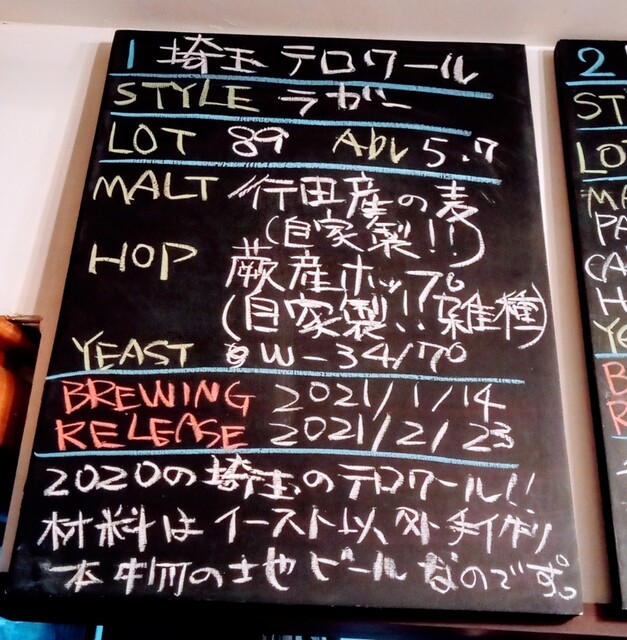 1 埼玉 テロワール
STYLE ラガー
LOT 89 Abv 5.7
MALT 行田産の麦
(自家製!!)
HOP 蕨産ホップ。
(自家製!!雑種)
YEAST W-34/70
BREWING 2021/1/14
RELEASE 2021/2/23
2020の埼玉のテロワール!!
材料はイースト以外手作り
本物の地ビールなのです。
2
ST
LO
MA
PA
CA
H
Y
B
R